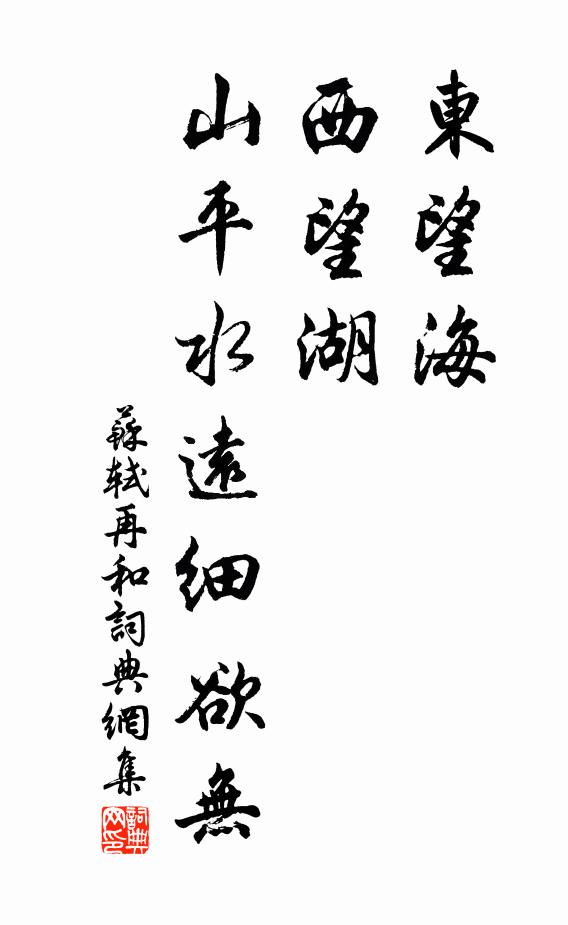 東望海
西望湖
山平水遠細欲無
蘇軾再和詞典網集
詞典网印